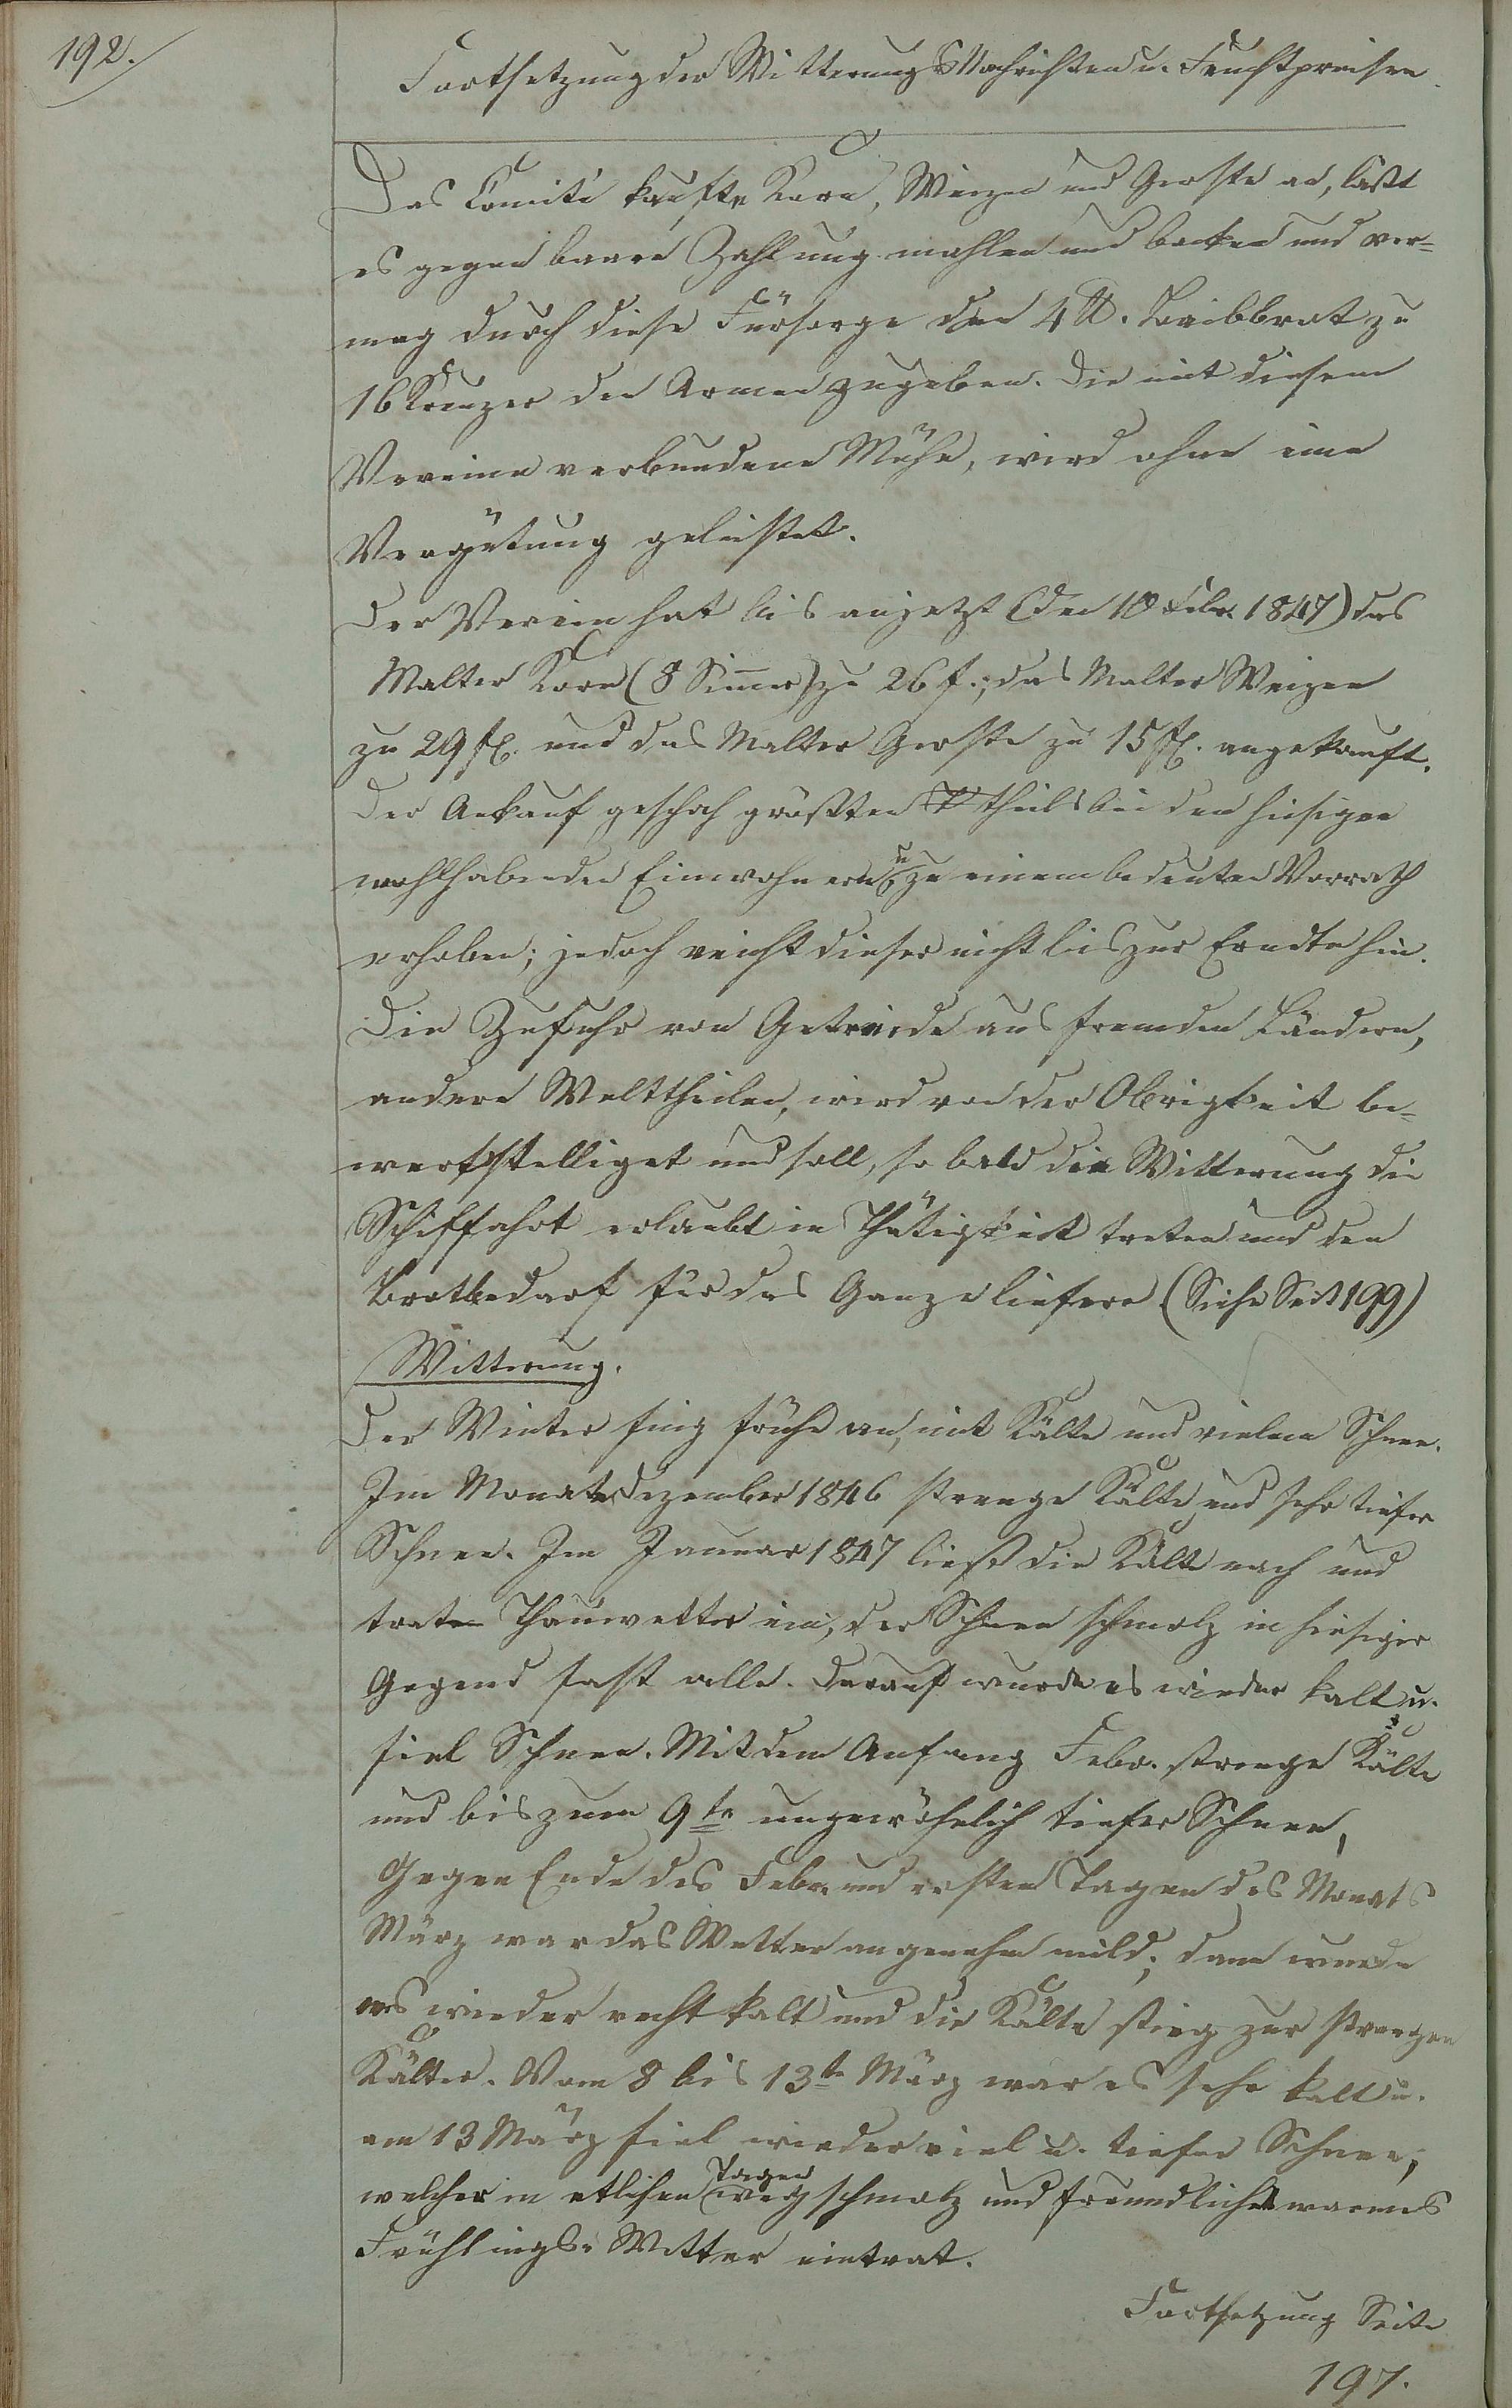 192.
Fortsetzung der Witterungs Nachrichten u. Fruchtpreisen.
Das Comité kaufte Korn, Weizen und Gerste an, läßt
es gegen baare Zahlung mahlen und backen und ver=
mag durch diese Fürsorge den 4 ℔. Laibbrot zu
16 Kreuzer den Armen zugeben. Die mit diesem
Vereine verbundene Mühe, wird ohne eine
Vergütung geleistet.
Der Verein hat bis anjetzt (den 10 Febr. 1847) das
Malter Korn (8 Simer) zu 26 f.; das Malter Weizen
zu 29 fl. und das Malter Gerste zu 15 fl. angekauft.
Der Ankauf geschah größten theils bei den hiesigen
wohlhabenden Einwohnern u zu einem bedeuten Vorrath
erhoben; jedoch reicht dieser nicht bis zur Erndte hin.
Die Zufuhr von Getreide aus fremden Ländern,
andern Welttheilen, wird von der Obrigkeit be=
werkstelliget und soll, so bald die Witterung die
Schiffahrt erlaubt in Thätigkeit treten und den
Brotbedarf für das Ganze liefern (Siehe Seit 199)
Witterung.
Der Winter fing frühe an, mit Kälte und vielem Schnee.
Im Monat Dezember 1846 strenge Kälte und sehr tiefer
Schnee. Im Januar 1847 ließ die Kälte nach und
trat Thauwetter ein, der Schnee schmolz in hiesiger
Gegend fast alle. Darauf wurde es wieder kalt u.
fiel Schnee. Mit dem Anfang Febr. strenge Kälte
und bis zum 9te ungewöhnlich tiefer Schnee,
Gegen Ende des Febr. und ersten Tagen des Monats
März war das Wetter angenehm mild; dann wurde
es wieder recht kalt und die Kälte stieg zur strengen
Kälter. Vom 8 bis 13te März war es sehr kalt u.
am 13 März fiel wieder viel u. tiefer Schnee,
welcher in etlichen Tagen weg schmolz und freundliches warmes
Frühlings-Wetter eintrat.
Fortsetzung Seite
197.